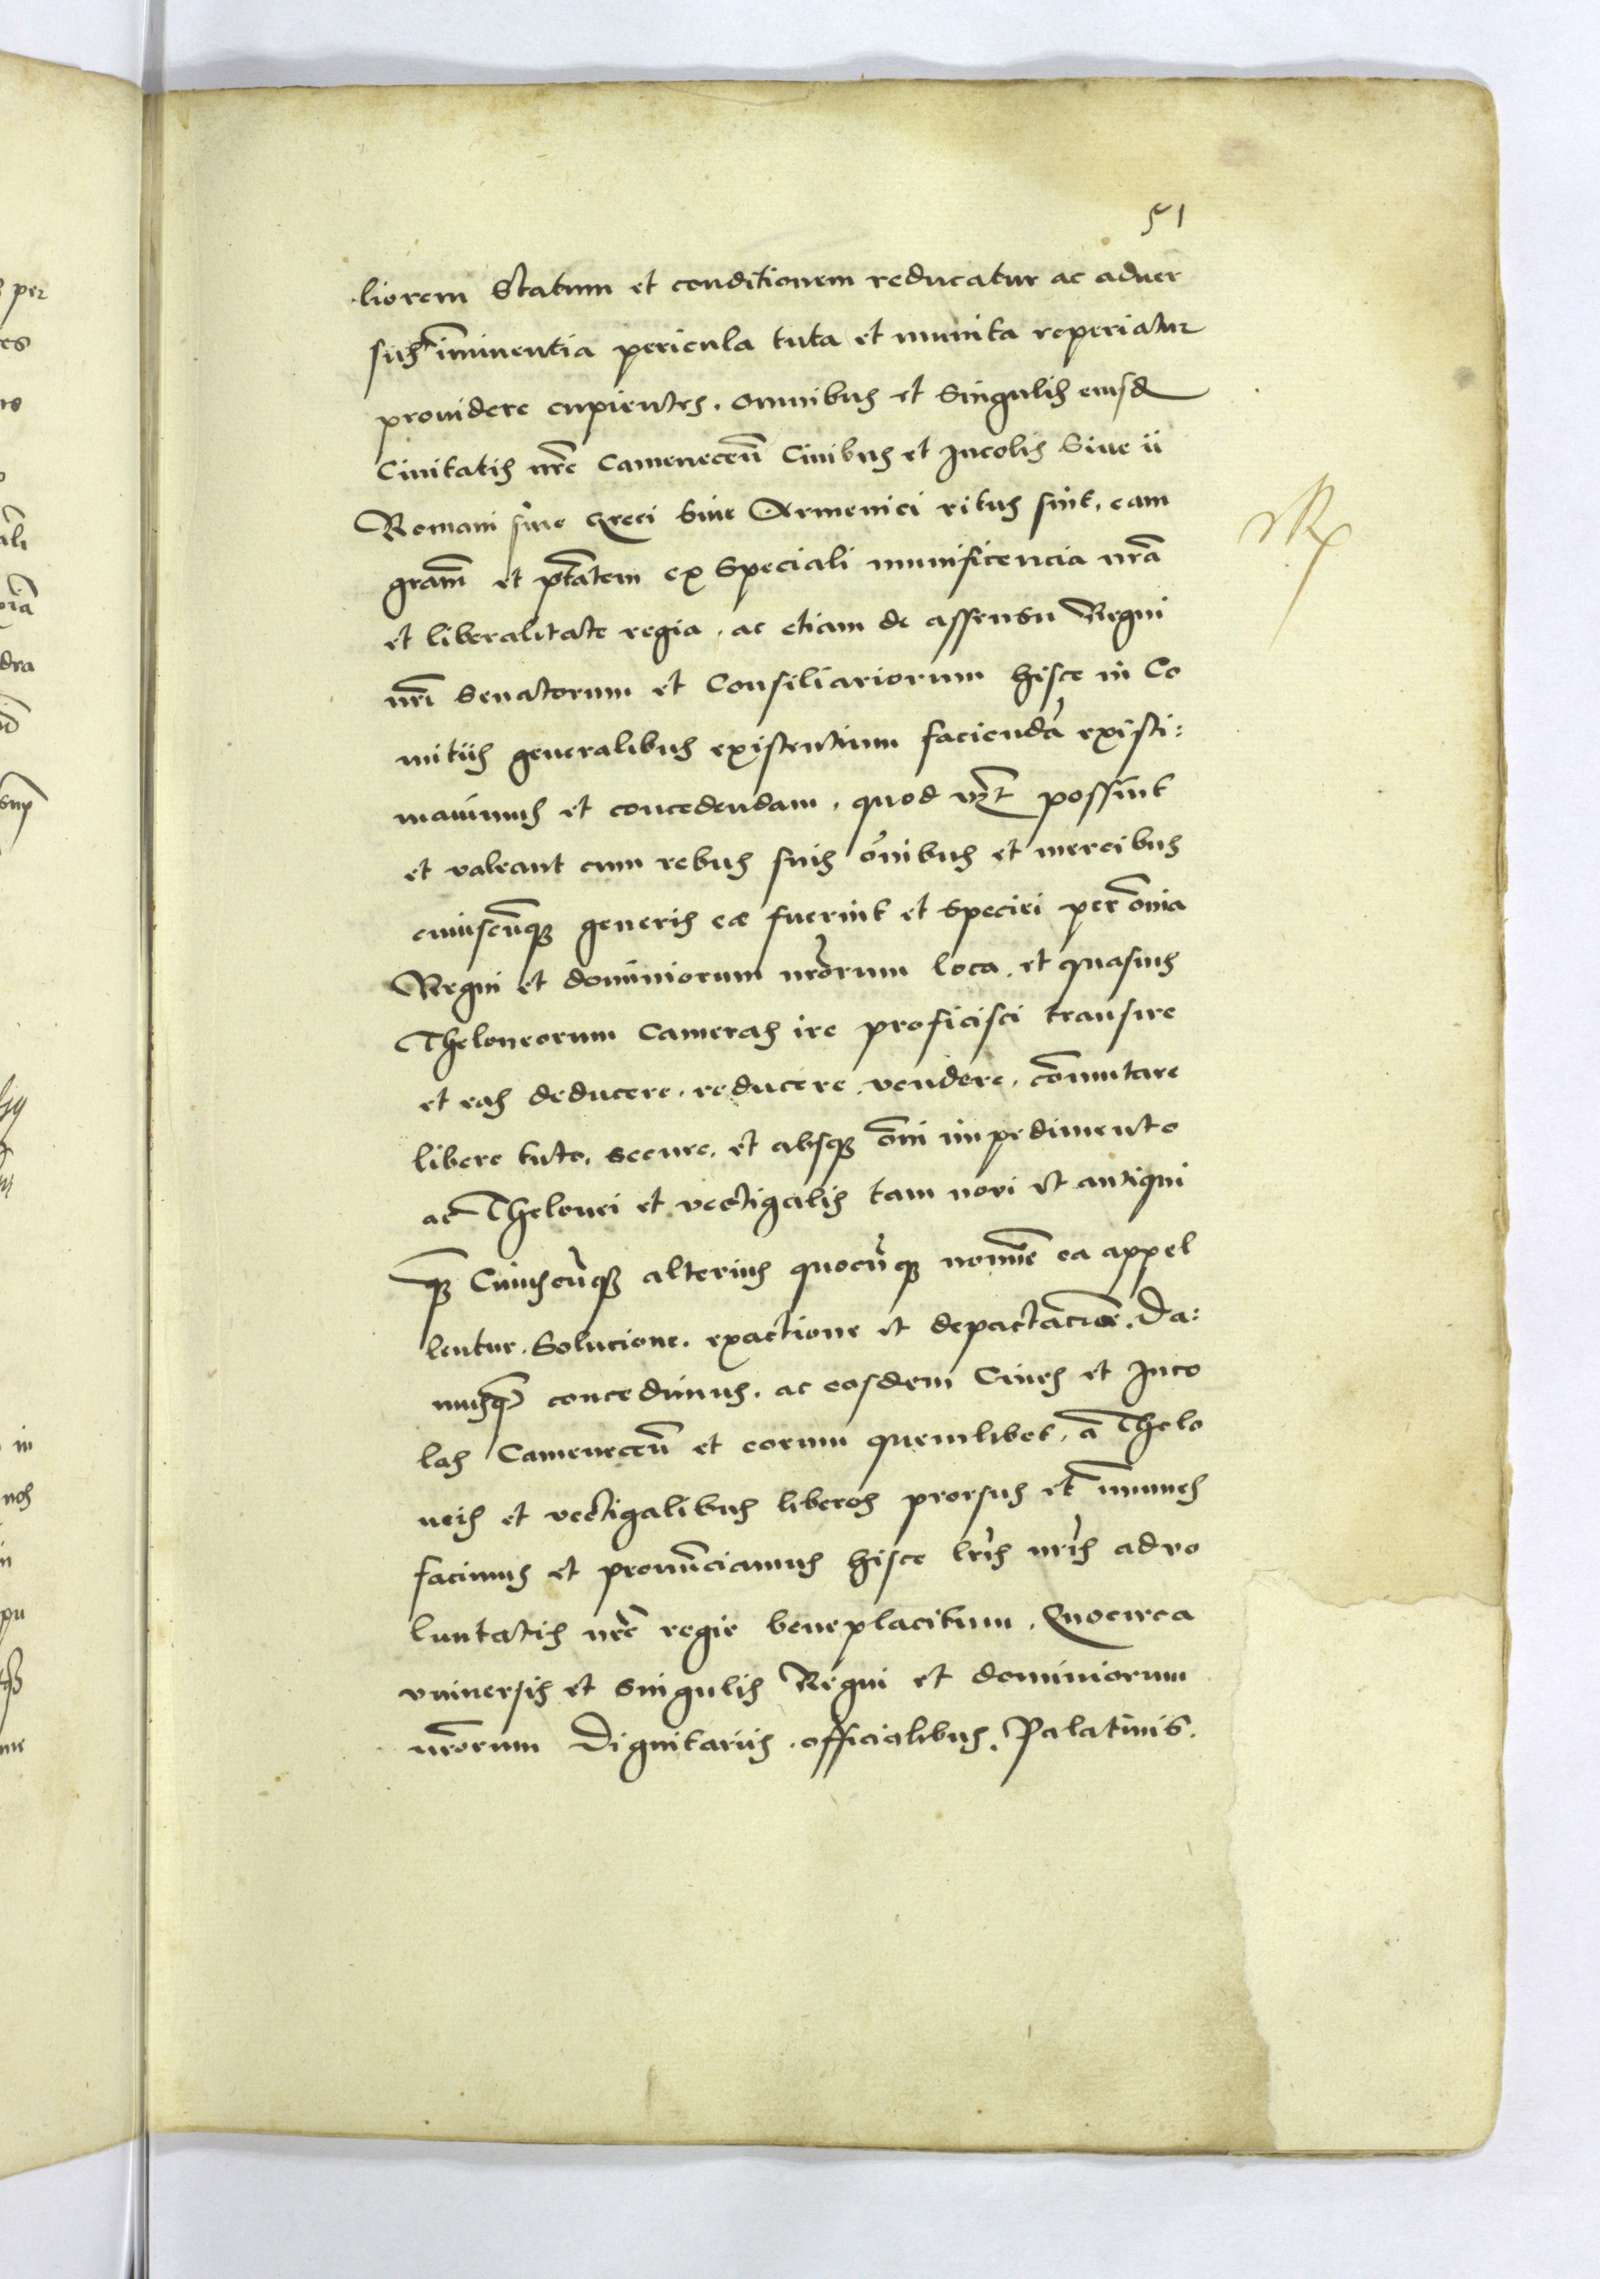 51
liorem Statum et conditionem reducatur ac aduer
sus im̄inentia pericula tuta et munita reperiatur
prouidere cupientes. omnibus et Singulis eiusd
Ciuitatis nr̄e Camenecen̄ Ciuibus et Incolis Siue ii
Romani siue Greci Siue Armenici ritus sint, eam
gram̄ et ptātem ex Speciali munificencia nr̄a
et liberalitate regia, ac etiam de assensu Regni
nr̄i Senatorum et Consiliariorum hisce in Co
mitiis generalibus existentium faciendā existi:
mauimus et concedendam, quod vz̄t possint
et valeant cum rebus suis om̄ibus et mercibus
cuiuscunqꝫ generis ea fuerint et Speciei per om̄ia
Regni et dominiorum nr̄orum loca, et quasuis
Theloneorum Cameras ire proficisci transire
et eas deducere, reducere, vendere, com̄utare
libere tuto, secure, et absqꝫ om̄i impedimento
ac Thelonei et vectigalis tam noui et antiqui
qꝫ Cuiuscūqꝫ alterius quocūqꝫ nomīe ea appel
lentur, Solucione, exactione et depactacioē. Da:
musqꝫ concedimus, ac eosdem Ciues et Inco
las Camenecen̄ et eorum quemlibet, a Thelo
neis et vectigalibus liberos prorsus et im̄unes
facimus et pronūnciamus hisce lr̄is nr̄is ad vo
luntatis nr̄e regie beneplacitum. Quocirca
vniuersis et Singulis Regni et dominiorum
nr̄orum Dignitariis, officialibus, Palatinis.